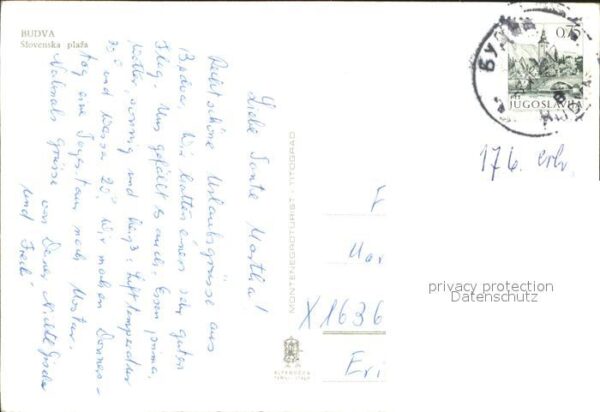 BUDVA
Slovenska plaža
Liebe Tante Martha!
Recht schöne Urlaubsgrüsse aus
Budva. Wir hatten einen sehr guten
Flug. Uns gefällt es auch. Essen prima,
Wetter, sonnig und heiß: Lufttemperatur
und Wasser 25°. Wir machen Donners-
tag eine Tagestour nach Mostar.
Nochmals Grüsse von Deiner Nichte
und Fredi
MONTENEGROTURIST - TITOGRAD
БУДВА
0,75
JUGOSLAVIJA
176. erh.
F
Mar
X1636
Eri
privacy protection
Datenschutz